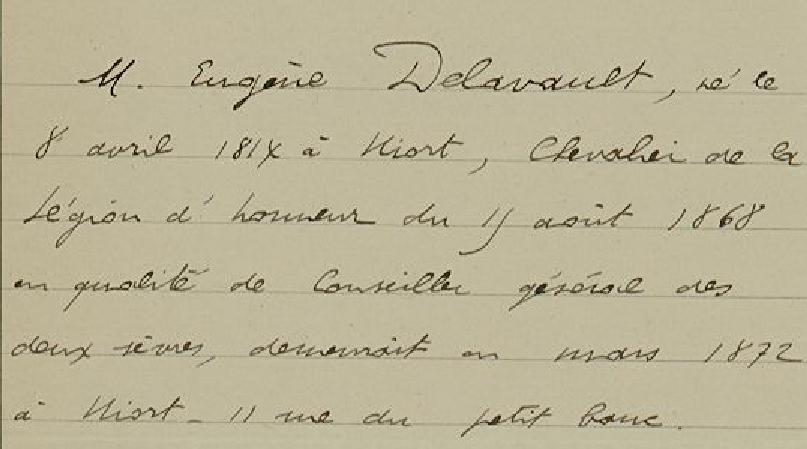 M. Eugène Delavault, né le
8 avril 181X à Niort, Chevalier de la
Légion d'honneur du 15 août 1868
en qualité de Conseiller général des
deux sèvres, demeurait en mars 1872
à Niort - 11 rue du petit banc.